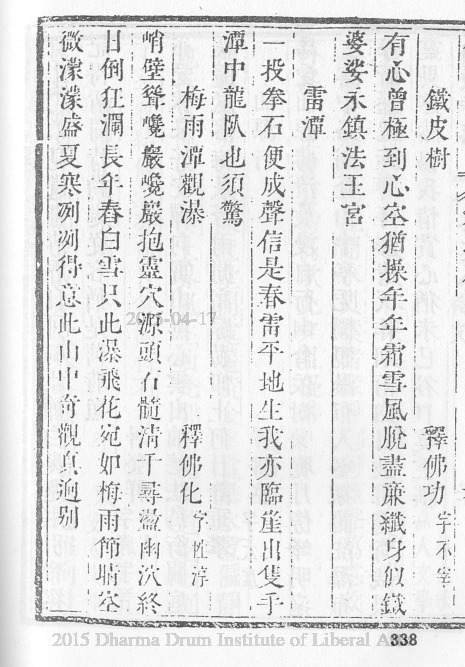 鐵皮樹 釋佛功字不宰
有心曾極到心空猶操年年霜雪風脫盡廉纖身似鐵
婆娑永鎮法王宮
雷潭
一投拳石便成聲信是春雷平地生我亦臨崖出隻手
潭中龍臥也須驚
梅雨潭觀瀑 釋佛化字性淳
峭壁聳巉巖巉巖抱靈穴源頭石髓清千尋瀉幽泬終
日倒狂瀾長年舂白雪只此瀑飛花宛如梅雨節晴空
微濛濛盛夏寒冽冽得意此山中奇觀真迥別
2015-04-17
2015 Dharma Drum Institute of Liberal A
338